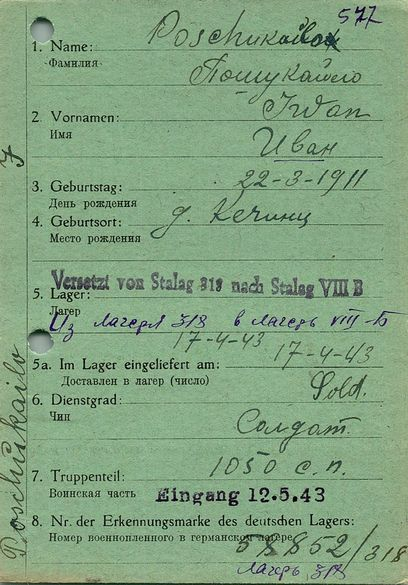 577
1. Name: Poschukailo
Фамилия Пошукайло
2. Vornamen: Iwan
Имя Иван
3. Geburtstag: 22-3-1911
День рождения
4. Geburtsort: д. Кечинц
Место рождения
Versetzt von Stalag 318 nach Stalag VIII B
5. Lager:
Лагер
Из лагеря 318 в лагерь VIII-Б
17-4-43
5a. Im Lager eingeliefert am: 17-4-43
Доставлен в лагер (число)
6. Dienstgrad: Sold.
Чин Солдат.
7. Truppenteil: 1050 с.п.
Воинская часть Eingang 12.5.43
8. Nr. der Erkennungsmarke des deutschen Lagers:
Номер военнопленного в германском лагере
/318
лагерь 318
Poschukailo J